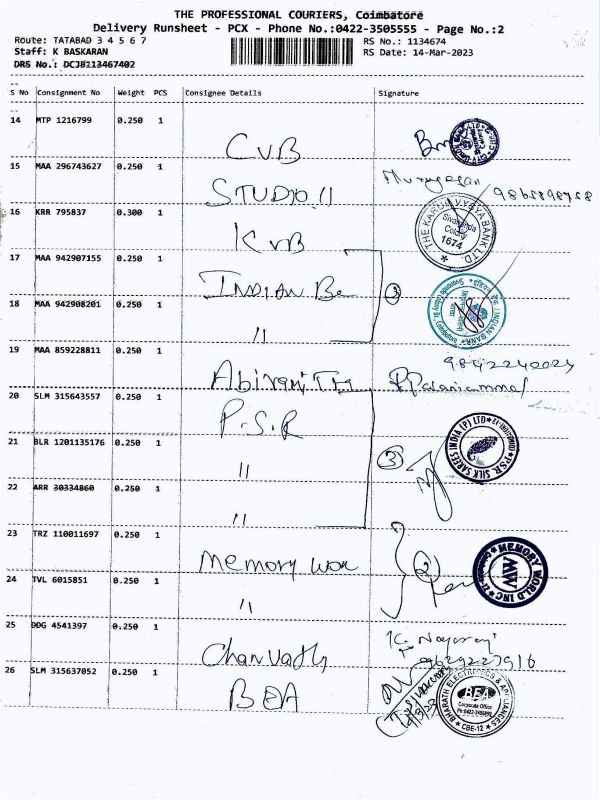 THE PROFESSIONAL COURIERS, Coimbatore
Delivery Runsheet - PCX - Phone No.:0422-3505555 - Page No.:2
Route: TATABAD 3 4 5 6 7
RS No.: 1134674
Staff: K BASKARAN
RS Date: 14-Mar-2023
DRS No.: DCJB113467402
S No Consignment No Weight PCS Consignee Details Signature
14 MTP 1216799 0.250 1
CVB
15 MAA 296743627 0.250 1
Murugesan
STUDIO 11
16 KRR 795837 0.300 1
KVB
THE KARUR VYSYA BANK LTD.
Sivananda Colony
1674
17 MAA 942907155 0.250 1
INDIAN Ba
3
18 MAA 942908201 0.250 1
"
INDIAN BANK
19 MAA 859228811 0.250 1
9842242024
Abirami Trs
P.Palaniammal
20 SLM 315643557 0.250 1
P.S.R
21 BLR 1201135176 0.250 1
"
3
P.S.R. SILK SAREES INDIA (P) LTD
22 ARR 30334860 0.250 1
"
23 TRZ 110011697 0.250 1
Memory wor
2
MEMORY WORLD INC
MW
24 TVL 6015851 0.250 1
"
25 DDG 4541397 0.250 1
9629227916
26 SLM 315637052 0.250 1
BEA
BHARATH ELECTRONICS & APPLIANCES
BEA
Corporate Office
CBE-12